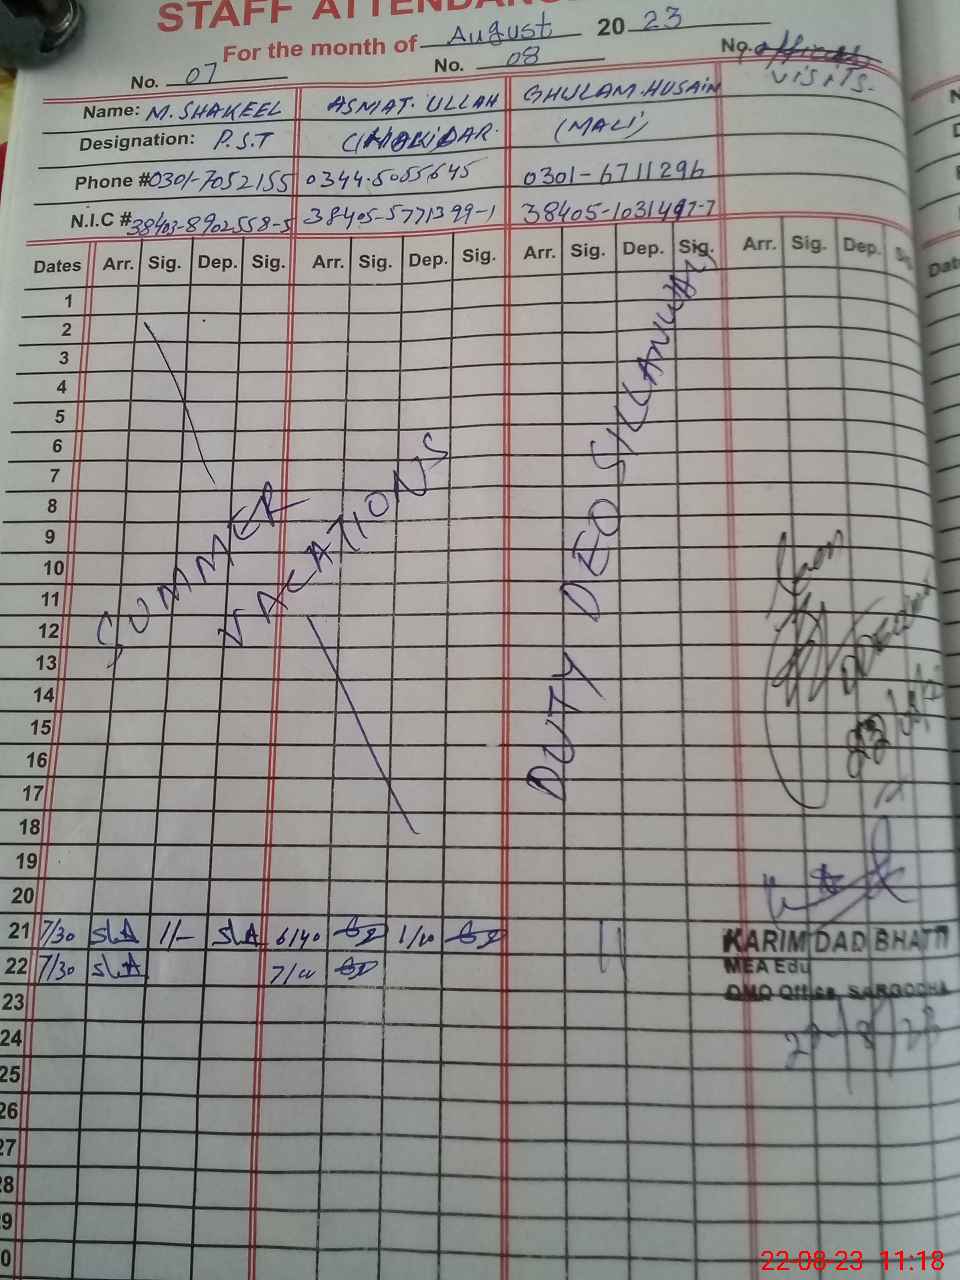 STAFF ATTENDANC
For the month of August 2023
No. 07 No. 08 No. visits.
Name: M. SHAKEEL ASMAT. ULLAH GHULAM. HUSAIN
Designation: P.S.T CHOKIDAR. (MALI)
Phone #0301-7052155 0344-5055645 0301-6711296
N.I.C # 38403-8902558-5 38405-5771399-1 38405-1031497-7
Dates Arr. Sig. Dep. Sig. Arr. Sig. Dep. Sig. Arr. Sig. Dep. Sig. Arr. Sig. Dep. Sig.
1
2
3
4
5
6
7
8
9
10
11
12
13
14
15
16
17
18
19
20
SUMMER
VACATIONS
DUTY DEO SILLANWALI
21 7/30 1/- 6/40
22 7/30
23
24
25
26
27
28
29
30
KARIM DAD BHATTI
MEA Edu
DMO Office, SARGODHA
22-08-23 11:18